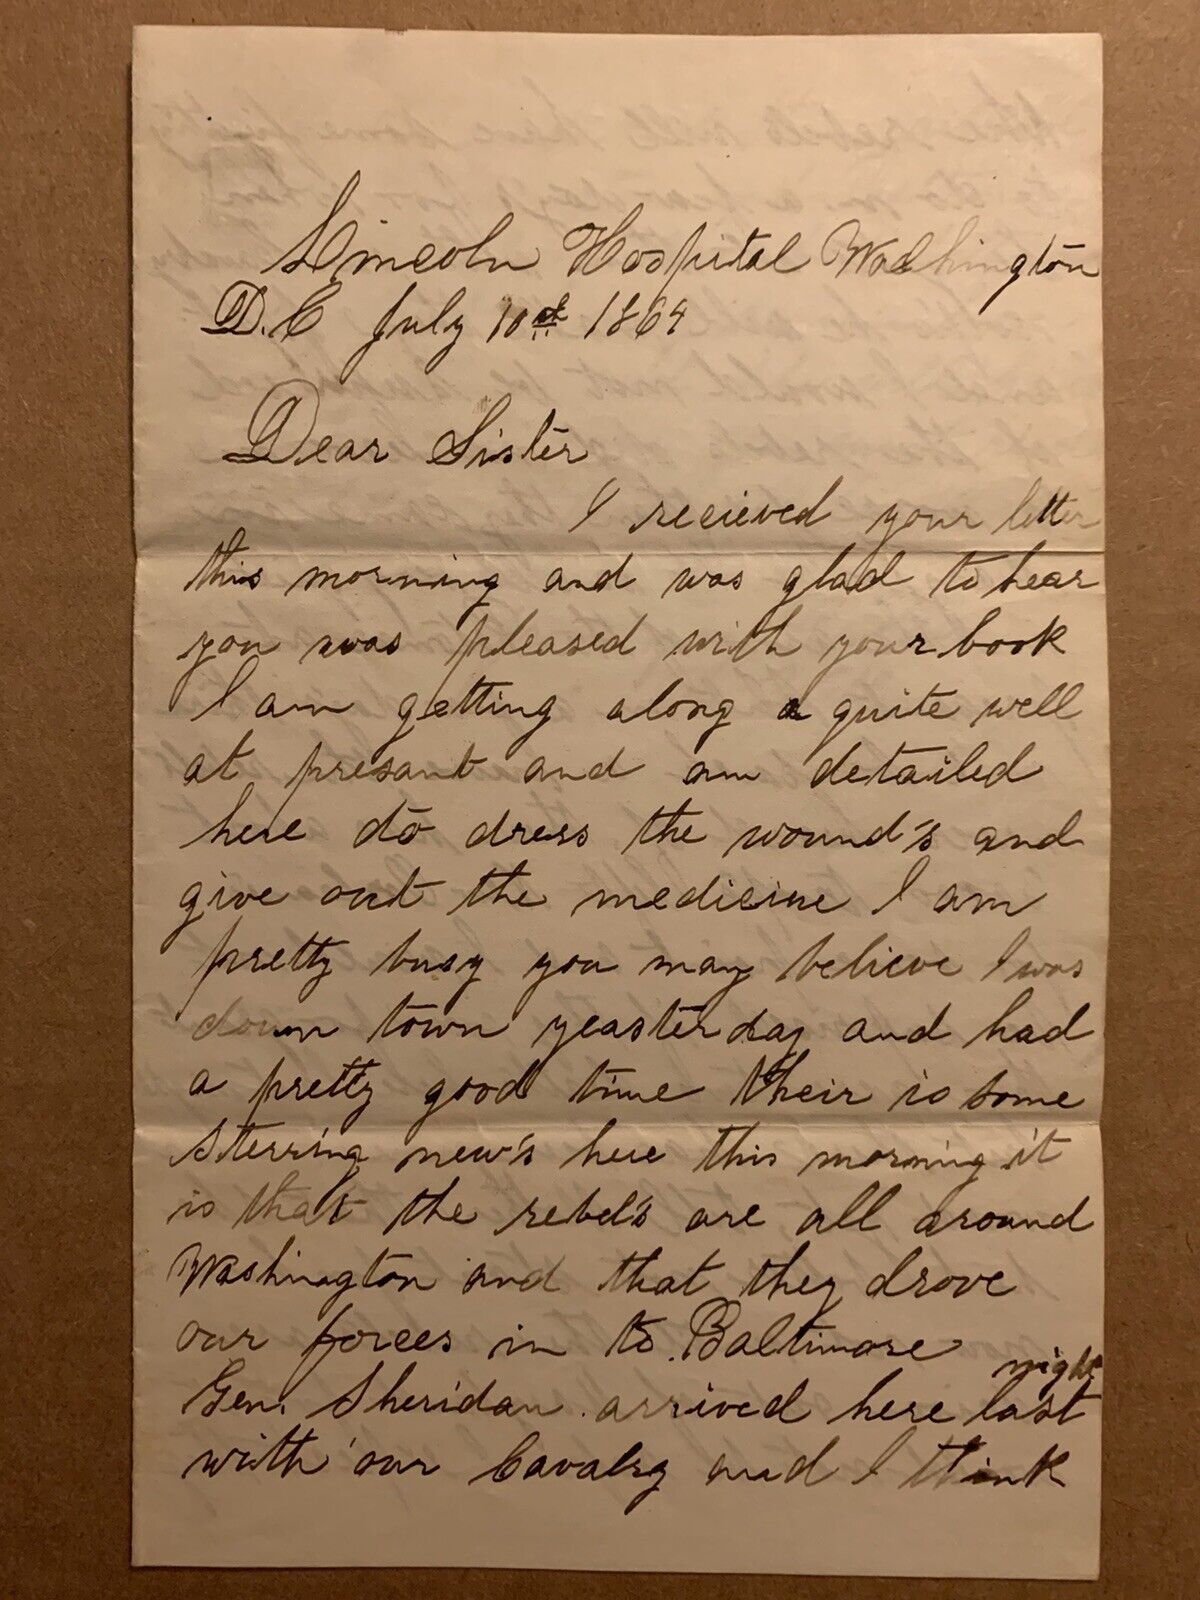 Lincoln Hospital Washington
D.C July 10st 1864
Dear Sister
I recieved your letter
this morning and was glad to hear
you was pleased with your book
I am getting along a quite well
at presant and am detailed
here to dress the wound's and
give out the medicine I am
pretty busy you may believe I was
down town yeasterday and had
a pretty good time their is some
sterring new's here this morning it
is that the rebel's are all around
Washington and that they drove
our forces in to Baltimore
night
Gen. Sheridan arrived here last
with our Cavalry and I think